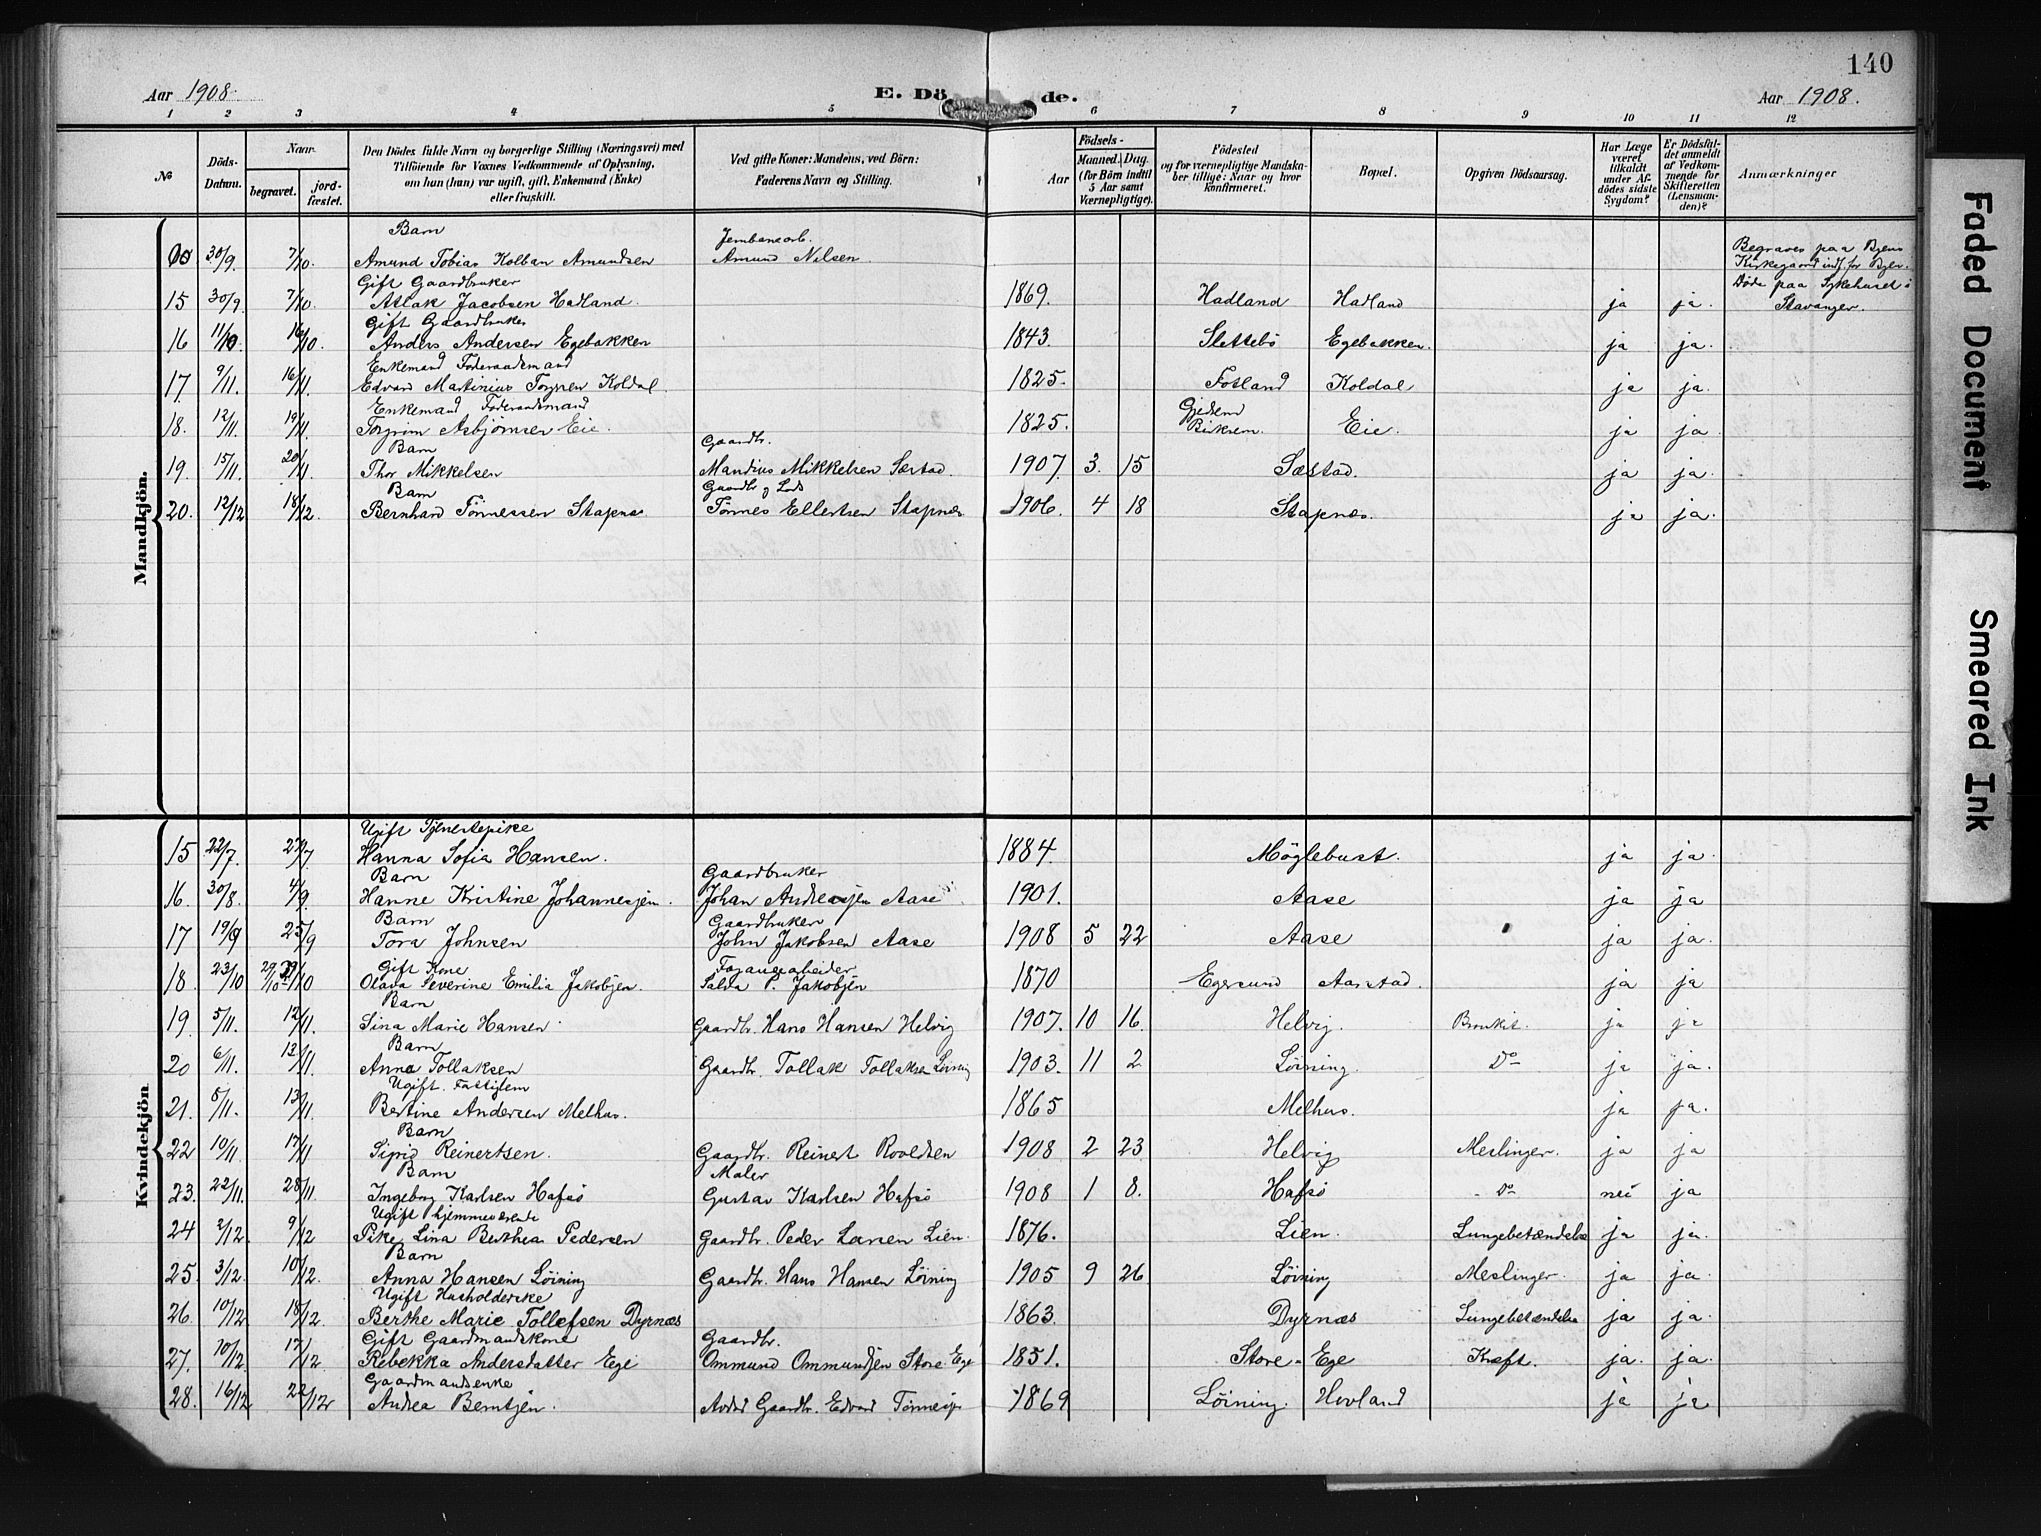 140
Aar 1908.
E. Dö de.
Aar 1908.
1 2 3 4 5 6 7 8 9 10 11 12
No
Döds-Datum.
Naar
begravet.
jord-fæstet.
Den Dödes fulde Navn og borgerlige Stilling (Næringsvei) med
Tilföiende for Voxnes Vedkommende af Oplysning,
om han (hun) var ugift, gift, Enkemand (Enke)
eller fraskilt.
Ved gifte Koner: Mandens, ved Börn:
Faderens Navn og Stilling.
Födsels-
Aar
Maaned. Dag.
(for Börn indtil
5 Aar samt
Værnepligtige).
Födested
og for værnepligtige Mandska-
ber tillige: Naar og hvor
konfirmeret.
Bopæl.
Opgiven Dödsaarsag.
Har Læge
været
tilkaldt
under Af-
dödes sidste
Sygdom?
Er Dödsfal-
det anmeldt
af Vedkom-
mende for
Skifteretten
(Lensman-
den)?
Anmærkninger
Mandkjön.
Barn Jernbanearb.
30/9. 7/10. Amund Tobias Kolban Amundsen Amund Nilsen. Begraves paa
Kirkegaard
Gift Gaardbruker Döde paa Sykehuset i
15 30/9. 7/10. Atlak Jacobsen Hadland. 1869. Hadland Hadland ja ja. Stavanger.
Gift Gaardbruker
16 11/10. 16/10. Anders Andersen Egebakken 1843. Slettebö Egebakken. ja ja.
Enkemand Föderaadsmand
17. 9/11. 16/11. Edvard Martinius Torgsen Koldal. 1825. Fotland Koldal ja ja.
Enkemand Föderaadsmand Gjedrem
18. 12/11. 19/11. Torgrim Asbjörnsen Eie. 1825. Birkrem. Eie. ja ja.
Barn Gaardbr.
19. 15/11. 20/11. Thor Mikkelsen Mandius Mikkelsen Sæstad. 1907. 3. 15 Sæstad. ja ja.
Barn Gaardbr. og Lods
20. 12/12 18/12. Bernhard Tönnessen Stapnæs Tönnes Ellertsen Stapnæs 1906. 4 18 Stapnæs. ja ja.
Kvindekjön
Ugift Tjenestepike
15 22/7. 27/7 Hanna Sofia Hansen. 1884. Möglebust. ja ja.
Barn Gaardbruker
16. 30/8. 4/9. Hanne Kristine Johannesjen. Johan Andreasjen Aase 1901. Aase ja ja
Barn Gaardbruker
17 19/9 25/9 Tora Johnsen John Jakobsen Aase 1908 5 22 Aase ja ja.
Gift Kone
18. 23/10 29/10 29/10 Olava Severine Emilia Jakobjen. Salva P. Jakobjen 1870 Egersund Aarstad. ja ja
Barn
19. 5/11. 12/11. Sina Marie Hansen. Gaardbr. Hans Hansen Helvig 1907. 10 16. Helvig. Bronkit. ja ja
Barn
20 6/11. 12/11. Anna Tollaksen Gaardbr. Tollak Tollaksen Löining 1903. 11 2 Löining. Do ja ja.
Ugift. Fattiglem
21. 8/11. 13/11. Bertine Andersen Melhus. 1865 Melhus. ja ja.
Barn
22 10/11. 17/11 Sigrid Reinertsen. Gaardbr. Reinert Roveldsen 1908 2 23 Helvig Meslinger. ja ja
Barn Maler
23. 22/11. 28/11. Ingeborg Karlsen Hafsö Gustav Karlsen Hafsö 1908 1 8. Hafsö Do nei ja
Ugift hjemmeværende
24 2/12. 9/12 Pike Lina Berthea Pedersen Gaardbr. Peder Larsen Lien. 1876. Lien. Lungebetændelse ja ja.
Barn
25. 3/12. 10/12. Anna Hansen Löining Gaardbr. Hans Hansen Löining 1905 9 26 Löining Meslinger. ja ja.
Ugift Husholderske
26. 10/12 18/12. Berthe Marie Tollefsen Dyrnæs 1863. Dyrnæs Lungebetændelse ja ja.
Gift Gaardmandskone Gaardbr.
27. 10/12 17/12. Rebekka Andersdatter Ege Ommund Ommundjen Store Ege 1851. Store-Ege Kræft. ja. ja.
Gaardmandsenke
28. 16/12 22/12 Andrea Berntjen. Avdöd Gaardbr. Edvard Tönnesjen 1869 Löining. Hovland ja ja
Faded Document
Smeared Ink